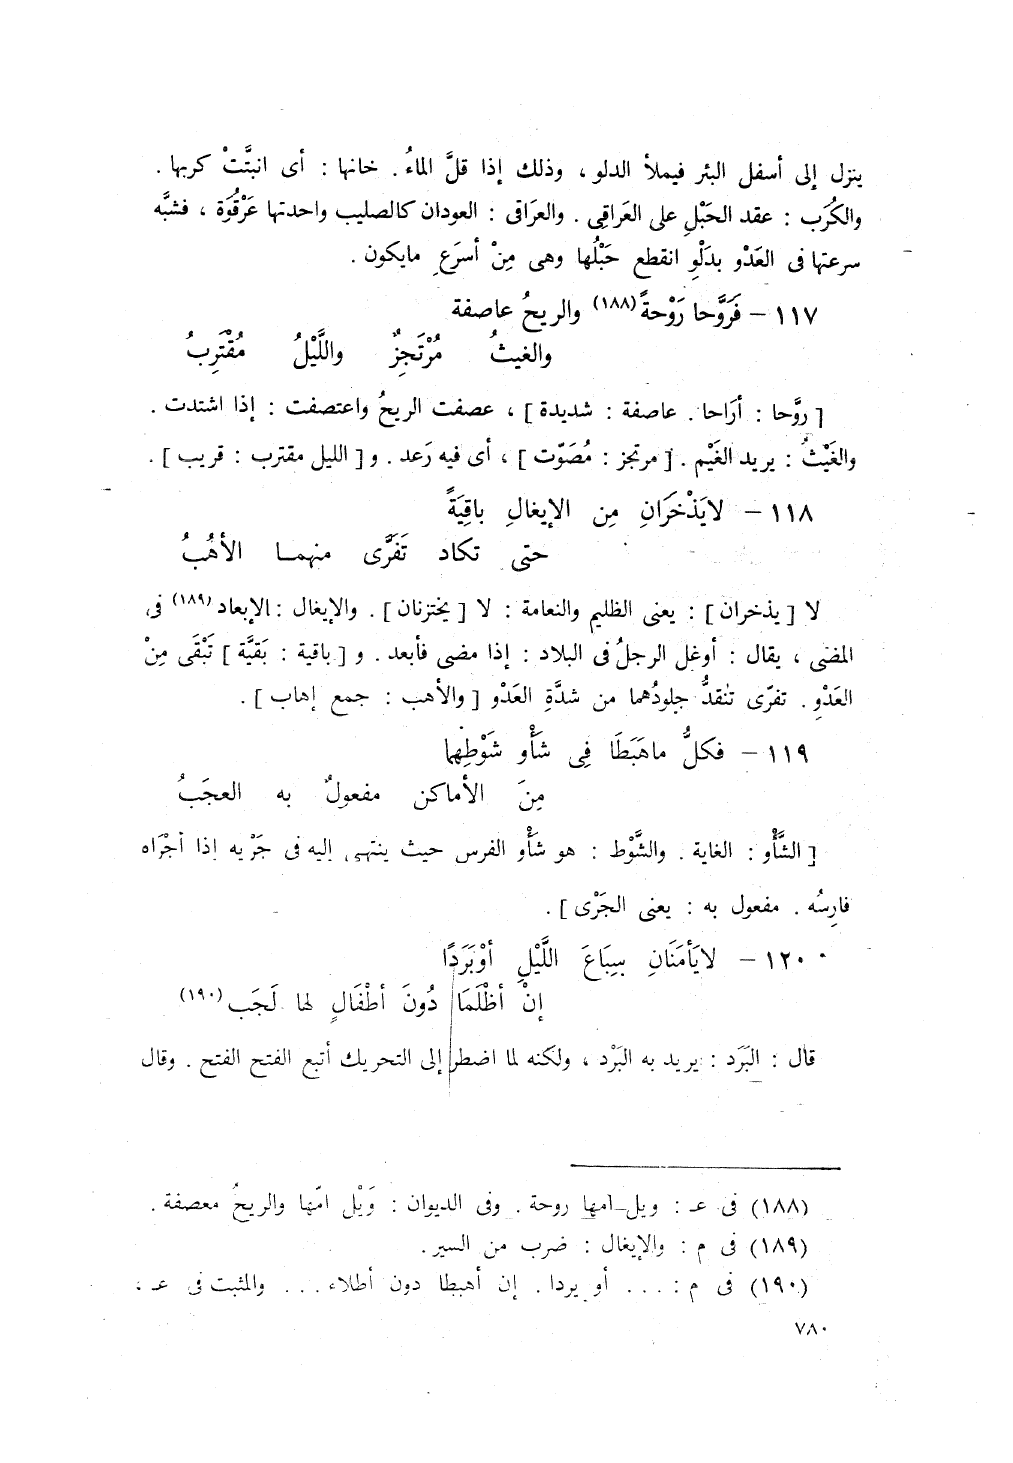 ينزل إلى أسفل البئر فيملأ الدلو ، وذلك إذا قلَّ الماءُ . خانها : أى انبتَّتْ كربها .
والكُرَب : عقد الحَبْلِ على العَراقِى . والعرَاقى : العودان كالصليب واحدتها عَرْقُوَة ، فشبَّه
سرعتها فى العَدْو بدَلْوِ انقطع حَبْلُها وهى مِنْ أسرَعِ مايكون .
١١٧ – فَرَوَّحا رَوْحةً (١٨٨) والريحُ عاصفة
والغيثُ مُرْتَجِزٌ واللَّيْلُ مُقْتَرِبُ
[ روَّحا : أرَاحا . عاصفة : شديدة ] ، عصفت الريحُ واعتصفت : إذا اشتدت .
والغَيْثُ : يريد الغَيْم . [ مرتجز : مُصَوّت ] ، أى فيه رَعد . و [ الليل مقترب : قريب ] .
١١٨ – لايَذْخَرَانِ مِن الإيغالِ باقِيَةً
حتى تكاد تَفَرَّى منهمـا الأهُبُ
لا [ يذخران ] : يعنى الظليم والنعامة : لا [ يختزنان ] . والإيغال : الإبعاد (١٨٩) فى
المضى ، يقال : أوغل الرجلُ فى البلاد : إذا مضى فأبعد . و [ باقية : بَقيَّة ] تَبْقَى مِنْ
العَدْوِ . تفرّى تنقدُّ جلودُهما من شدَّةِ العَدْو [ والأهب : جمع إهاب ] .
١١٩ – فكلُّ ماهَبَطَا فِى شَأْو شَوْطِهِما
مِنَ الأماكن مفعولٌ به العجَبُ
[ الشَّأْو : الغاية . والشَّوْط : هو شَأْو الفرس حيث ينتهى إليه فى جَرْيه إذا أجْرَاه
فارِسُه . مفعول به : يعنى الجَرْى ] .
١٢٠ – لايَأمَنَانِ سِبَاعَ اللَّيْلِ أوْبَرَدًا
إنْ أظْلَمَا دُونَ أطْفَالٍ لها لَجَب (١٩٠)
قال : البَرَد : يريد به البَرْد ، ولكنه لما اضطر إلى التحريك أتبع الفتح الفتح . وقال
(١٨٨) فى عـ : ويل امها روحة . وفى الديوان : وَيْل امّها والريحُ معصفة .
(١٨٩) فى م : والإيغال : ضرب من السير .
(١٩٠) فى م : ... أو يردا . إن أهبطا دون أطلاء ... والمثبت فى عـ .
٧٨٠